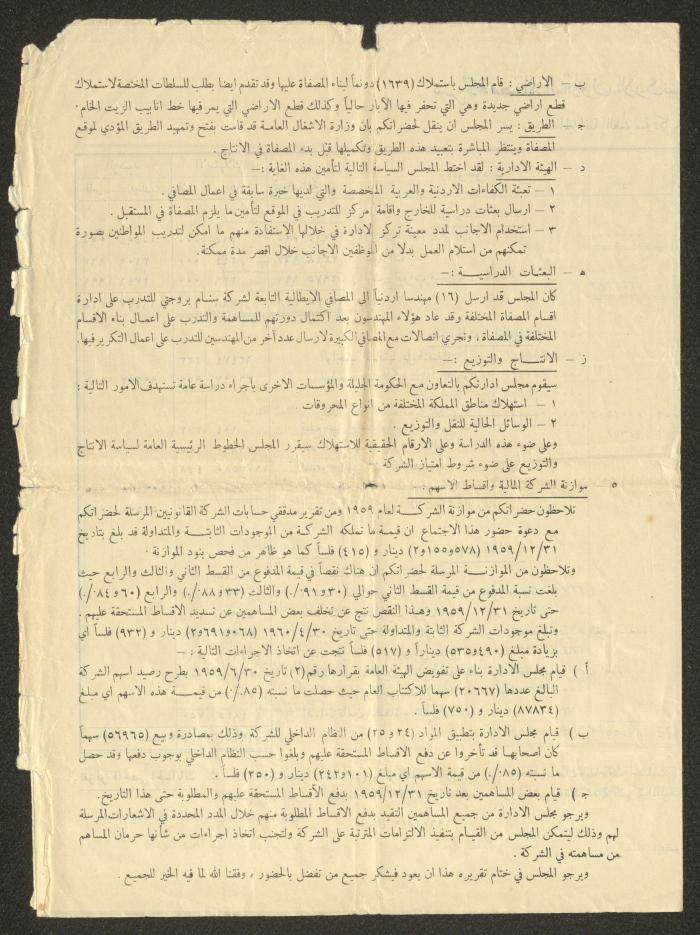 ب – الاراضي : قام المجلس باستملاك (١٦٣٩) دونماً لبناء المصفاة عليها وقد تقدم ايضا بطلب للسلطات المختصة لاستملاك
قطع اراضي جديدة وهي التي تحفر فيها الآبار حالياً وكذلك قطع الاراضي التي يمر فيها خط انابيب الزيت الخام .
ج – الطريق : يسر المجلس ان ينقل لحضراتكم بان وزارة الاشغال العامة قد قامت بفتح وتمهيد الطريق المؤدي لموقع
المصفاة وينتظر المباشرة بتعبيد هذه الطريق وتكميلها قبل بدء المصفاة في الانتاج .
د – الهيئة الادارية : لقد اختط المجلس السياسة التالية لتأمين هذه الغاية :–
١ – تعبئة الكفاءات الاردنية والعربية المخصصة والتي لديها خبرة سابقة في اعمال المصافي .
٢ – ارسال بعثات دراسية للخارج واقامة مركز للتدريب في الموقع لتأمين ما يلزم المصفاة في المستقبل .
٣ – استخدام الاجانب لمدد معينة تركز الادارة في خلالها الاستفادة منهم ما امكن لتدريب المواطنين بصورة
تمكنهم من استلام العمل بدلا من الموظفين الاجانب خلال اقصر مدة ممكنة.
ه – البعثات الدراسيــة :–
كان المجلس قد ارسل (١٦) مهندسا اردنياً الى المصافي الايطالية التابعة لشركة سنام بروجتي للتدرب على ادارة
اقسام المصفاة المختلفة وقد عاد هؤلاء المهندسون بعد اكتمال دورتهم للمساهمة والتدرب على اعمال بناء الاقسام
المختلفة في المصفاة ، وتجري اتصالات مع المصافي الكبيرة لارسال عدد آخر من المهندسين للتدرب على اعمال التكرير فيها.
ز – الانتــاج والتوزيع :–
سيقوم مجلس ادارتكم بالتعاون مع الحكومة الجليلة والمؤسسات الاخرى باجراء دراسة عامة تستهدف الامور التالية :
١ – استهلاك مناطق المملكة المختلفة من انواع المحروقات .
٢ – الوسائل الحالية للنقل والتوزيع .
وعلى ضوء هذه الدراسة وعلى الارقام الحقيقية للاستهلاك سيقرر المجلس الخطوط الرئيسية العامة لسياسة الانتاج
والتوزيع على ضوء شروط امتياز الشركة
٥ موازنة الشركة المالية واقساط الاسهم .
تلاحظون حضراتكم من موازنة الشركــة لعام ١٩٥٩ ومن تقرير مدققي حسابات الشركة القانونيين المرسلة لحضراتكم
مع دعوة حضور هذا الاجتماع ان قيمة ما تملكه الشركة من الموجودات الثابتــة والمتداولة قد بلغ بتاريخ
١٩٥٩/١٢/٣١ (٥٧٨و١٥٥و٢) دينار و (٤١٥) فلساً كما هو ظاهر من فحص بنود الموازنة .
وتلاحظون من الموازنــة المرسلة لحضراتكم ان هناك نقصاً في قيمة المدفوع من القسط الثاني والثالث والرابع حيث
بلغت نسبة المدفوع من قيمة القسط الثاني حوالي (٣٠و٩١٪) والثالث (٣٣و٨٨٪) والرابع (٦٠و٨٤٪)
حتى تاريخ ١٩٥٩/١٢/٣١ وهــذا النقص نتج عن تخلف بعض المساهمين عن تسديد الاقساط المستحقة عليهم .
وتبلغ موجودات الشركة الثابتة والمتداولة حتى تاريخ ١٩٦٠/٤/٣٠ (٠٦٨و٦٩١و٢) دينار و (٩٣٢) فلساً اي
بزيادة مبلغ (٤٩٠و٥٣٥) ديناراً و (٥١٧) فلساً نتجت عن اتخاذ الاجراءات التالية :–
أ ) قيام مجلس الادارة بناء على تفويض الهيئة العامة بقرارها رقم (٢) تاريخ ١٩٥٩/٦/٣٠ بطرح رصيد اسهم الشركة
البالغ عددها (٢٠٦٦٧) سهما للاكتتاب العام حيث حصلت ما نسبته (٨٥٪) من قيمــة هذه الاسهم اي مبلغ
(٨٧٨٣٤) دينار و (٧٥٠) فلساً .
ب ) قيام مجلس الادارة بتطبيق المواد (٢٤ و ٢٥) من النظام الداخلي للشركة وذلك بمصادرة وبيع (٥٦٩٦٥) سهماً
كان اصحابها قد تأخروا عن دفع الاقساط المستحقة عليهم وبلغوا حسب النظام الداخلي بوجوب دفعها وقد حصل
ما نسبته (٨٥٪) من قيمة الاسهم اي مبلغ (١٠١و٢٤٢) دينار و (٢٥٠) فلساً .
ج ) قيام بعض المساهمين بعد تاريخ ١٩٥٩/١٢/٣١ بدفع الأقساط المستحقة عليهم والمطلوبة حتى هذا التاريخ.
ويرجو مجلس الادارة من جميع المساهمين التقيد بدفع الاقساط المطلوبة منهم خلال المدد المحددة في الاشعارات المرسلة
لهم وذلك ليتمكن المجلس من القيــام بتنفيذ الالتزامات المترتبة على الشركة ولتجنب اتخاذ اجراءات من شأنها حرمان المساهم
من مساهمته في الشركة .
ويرجو المجلس في ختام تقريره هذا ان يعود فيشكر جميع من تفضل بالحضور ، وفقنا الله لما فيه الخير للجميع .